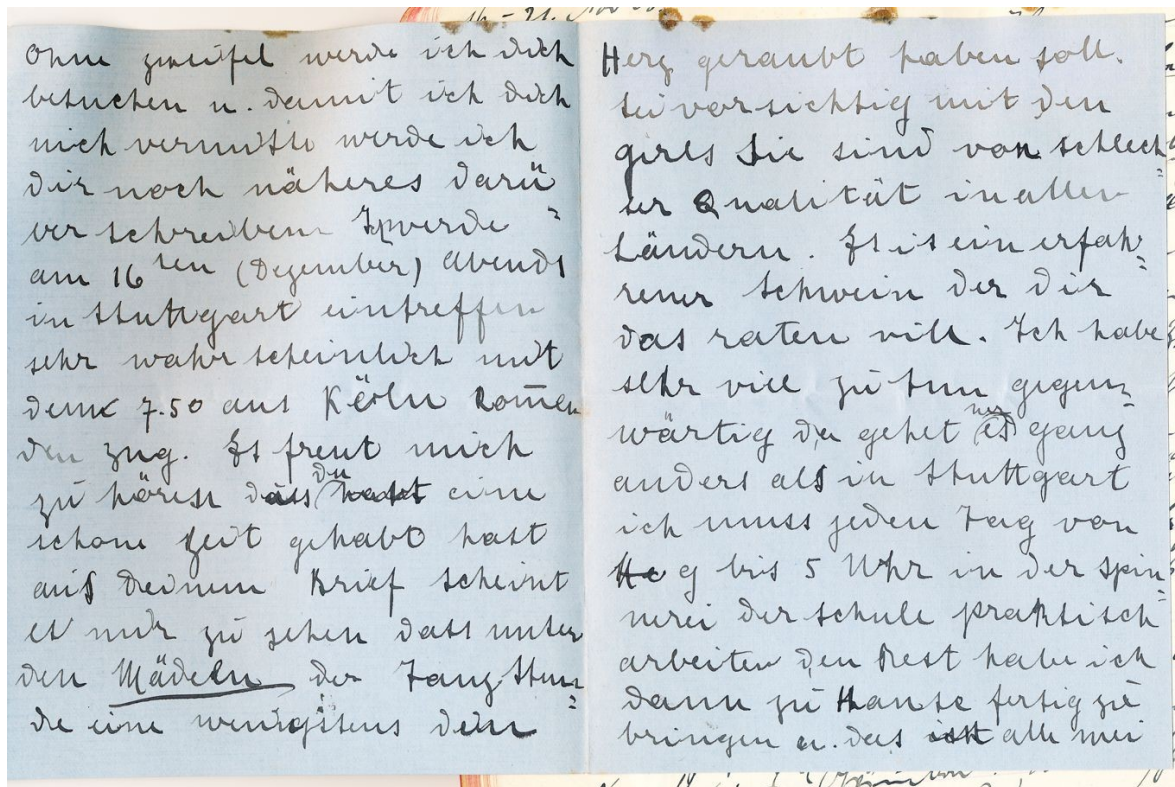 Ohne zweifel werde ich dich
besuchen u. damit ich dich
nich vermisse werde ich
dir noch näheres darü
ber schreiben Ich werde
am 16ten (Dezember) Abends
in Stuttgart eintreffen
sehr wahrscheinlich mit
dem 7.50 aus Köln komen
den zug. Es freut mich
zu hören dass du eine
schöne zeit gehabt hast
aus Deinem Brief scheint
es mir zu sehen dass unter
den Mädeln der Tanz Stun=
de eine wenigstens dein
Herz geraubt haben soll.
Sei vorsichtig mit den
girls Sie sind von schlech=
ter Qualität in allen
Ländern. Es ist ein erfah=
rener Schwein der dir
das raten vill. Ich habe
sehr viel zu tun gegen=
wärtig da gehet es ganz
anders als in Stuttgart
ich muss jeden Tag von
9 bis 5 Uhr in der Spin=
nerei der Schule praktisch
arbeiten den Rest habe ich
dann zu Hause fertig zu
bringen u. das alle mei